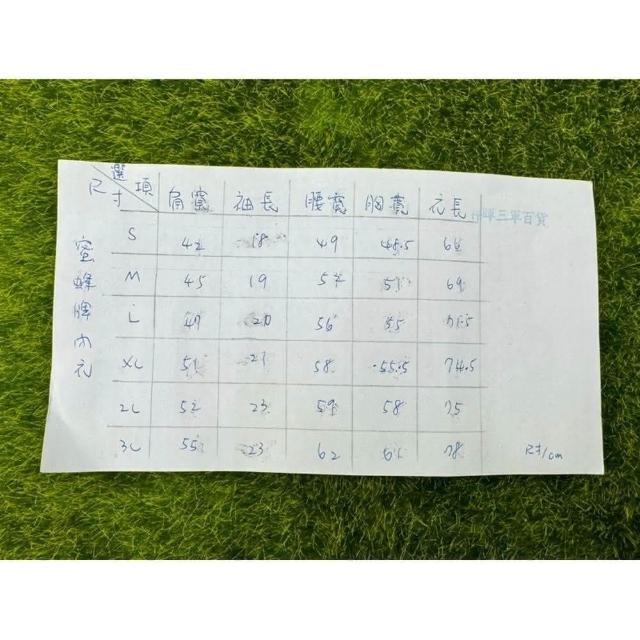 選項
尺寸 肩寬 袖長 腰寬 胸寬 衣長
蜜蜂牌內衣
S 42 18 49 48.5
M 45 19 69
L 20 56 55 71.5
XL 51 21 58 55.5 74.5
2L 52 23 59 58 75
3L 55 23 62 61 78
三軍百貨
尺寸/cm